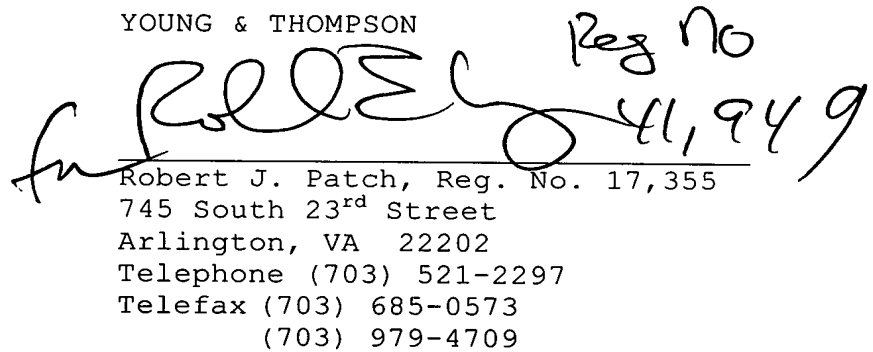 YOUNG & THOMPSON
Reg No
for 41,949
Robert J. Patch, Reg. No. 17,355
745 South 23rd Street
Arlington, VA 22202
Telephone (703) 521-2297
Telefax (703) 685-0573
(703) 979-4709